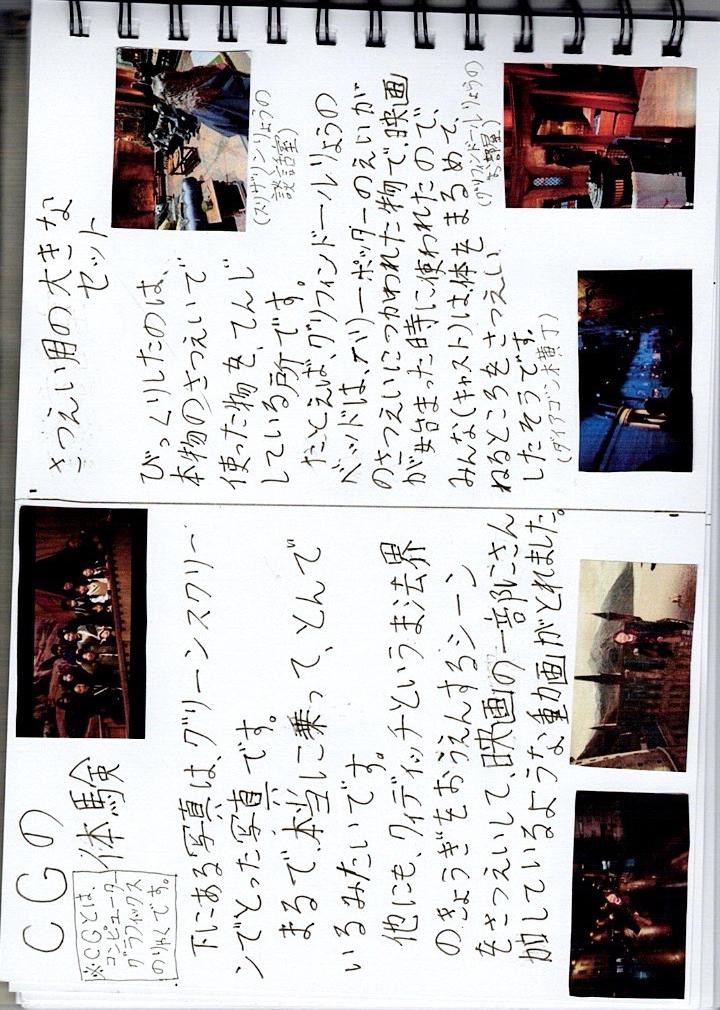 CGの
体験
※CGとは、
コンピューター
グラフィックス
のりゃくです。
下にある写真は、グリーンスクリー
ンでとった写真です。
まるで本当に乗って、とんで
いるみたいです。
他にも、クィディッチというまほう界
のきょうぎをおうえんするシーン
をさつえいして、映画の一部にさん
加しているような動画がとれました。
さつえい用の大きな
セット
びっくりしたのは、
本物のさつえいで
使った物を、てんじ
している所です。
たとえば、グリフィンドールりょうの
ベッドは、ハリーポッターのえいが
のさつえいにつかわれた物で、映画
が始まった時に使われたので、
みんな(キャスト)は体をまるめて、
ねるところをさつえい
したそうです。
(スリザリンりょうの
談話室)
(グリフィンドールりょうの
(ダイアゴン横丁)